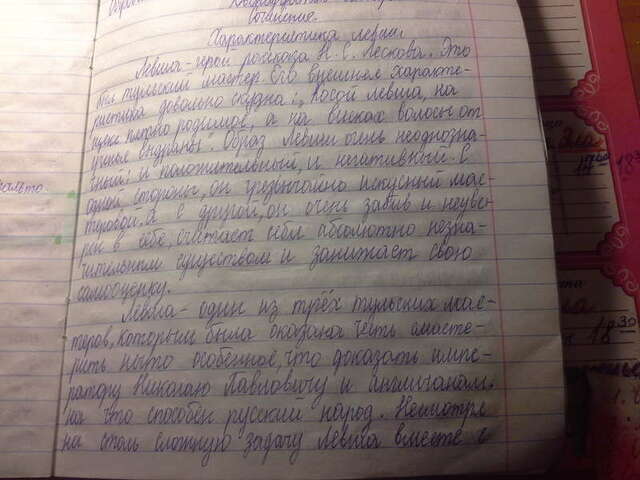 Сочинение.
Характеристика левши
Левша - герой рассказа Н. С. Лескова. Это
был тульский мастер. Его внешняя характе-
ристика довольно скудна: „косой левша, на
щеке пятно родимое, а на висках волосы от
учения выдраны". Образ Левши очень неоднозна-
чный: и положительный, и негативный. С
одной стороны, он чрезвычайно искусный мас-
теровой. А с другой, он очень забив и неуве-
рен в себе, считает себя абсолютно незна-
чительным существом и занижает свою
самооценку.
Левша - один из трёх тульских мас-
теров, которым была оказана честь смасте-
рить нечто особенное, что доказать импе-
ратору Николаю Павловичу и англичанам,
на что способен русский народ. Несмотря
на столь сложную задачу Левша вместе с